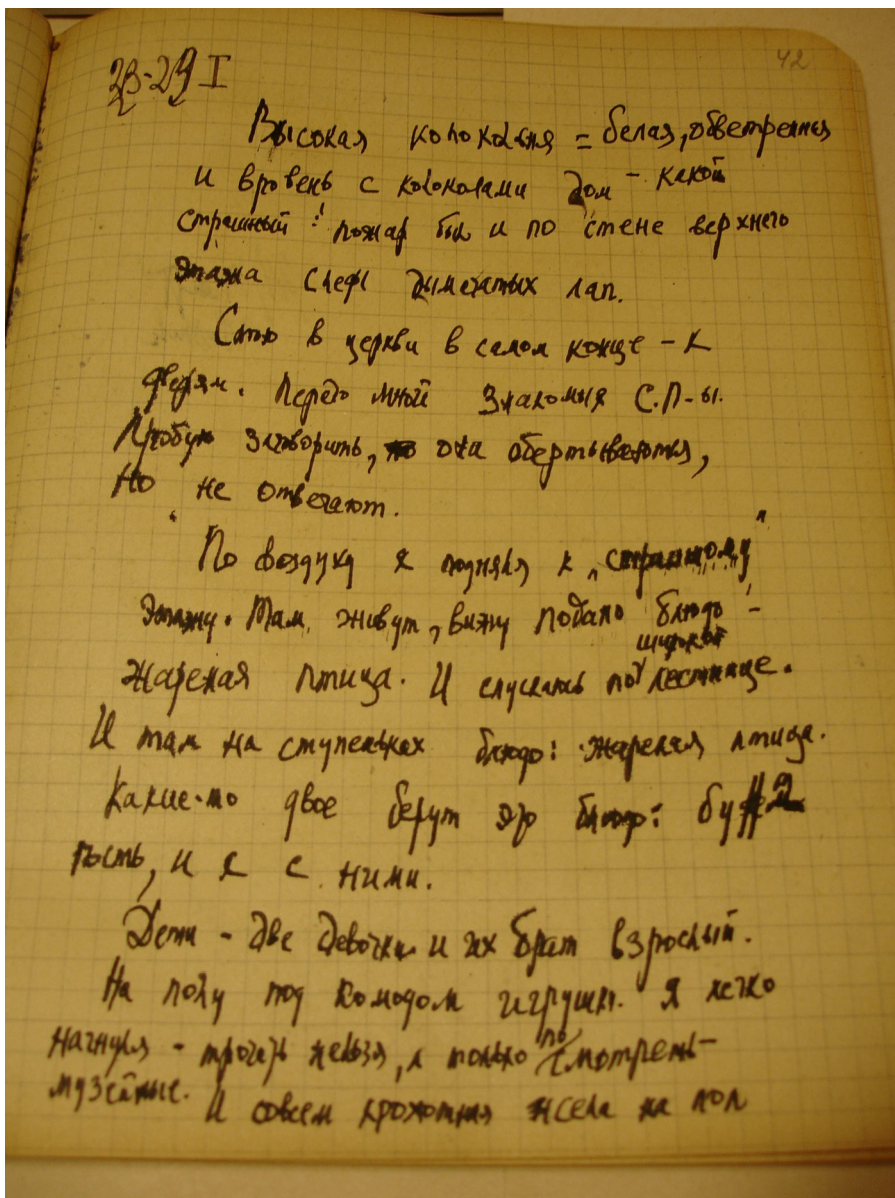 42
23-29 I
Высокая колокольня = белая, обветренная
и вровень с колоколами дом - какой
страшный! пожар был и по стене верхнего
этажа следы дымчатых лап.
Стою в церкви в самом конце - к
дверям. Передо мной знакомые С.П-ы.
Пробую заговорить, они обертываются,
но не отвечают.
По воздуху я поднялся к „страшному"
этажу. Там живут, вижу подано блюдо -
широкой
жареная птица. И спускаюсь по лестнице.
И там на ступеньках блюдо: жареная птица.
Какие-то двое берут это блюдо:
есть, и я с ними.
Дети - две девочки и их брат взрослый.
На полу под комодом игрушки. Я легко
нагнулся - трогать нельзя, а только посмотреть -
музейные. И совсем крохотная на пол